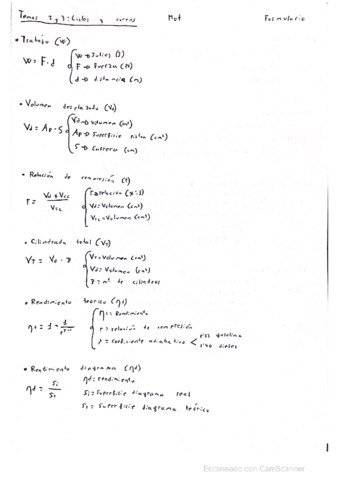 Temas 2 y 3: Ciclos y curvas Mot Formulario
• Trabajo (W)
W = F · d
W → Julios (J)
F → Fuerza (N)
d → distancia (m)
• Volumen desplazado (Vd)
Vd = Ap · S
Vd → Volumen (cm³)
Ap → Superficie piston (cm²)
S → Carrera (cm)
• Relación de compresión (r)
r = Vd + Vcc / Vcc
r = relacion (x:1)
Vd = Volumen (cm³)
Vcc = Volumen (cm³)
• Cilindrada total (VT)
VT = Vd · z
VT = Volumen (cm³)
Vd = Volumen (cm³)
z = nº de cilindros
• Rendimiento teorico (ηt)
ηt = Rendimiento
r = relación de compresión
γ = coeficiente adiabatico
gasolina
diesel
• Rendimiento diagrama (ηd)
ηd = Si / St
ηd = rendimiento
Si = Superficie diagrama real
St = Superficie diagrama teórico
1
Escaneado con CamScanner